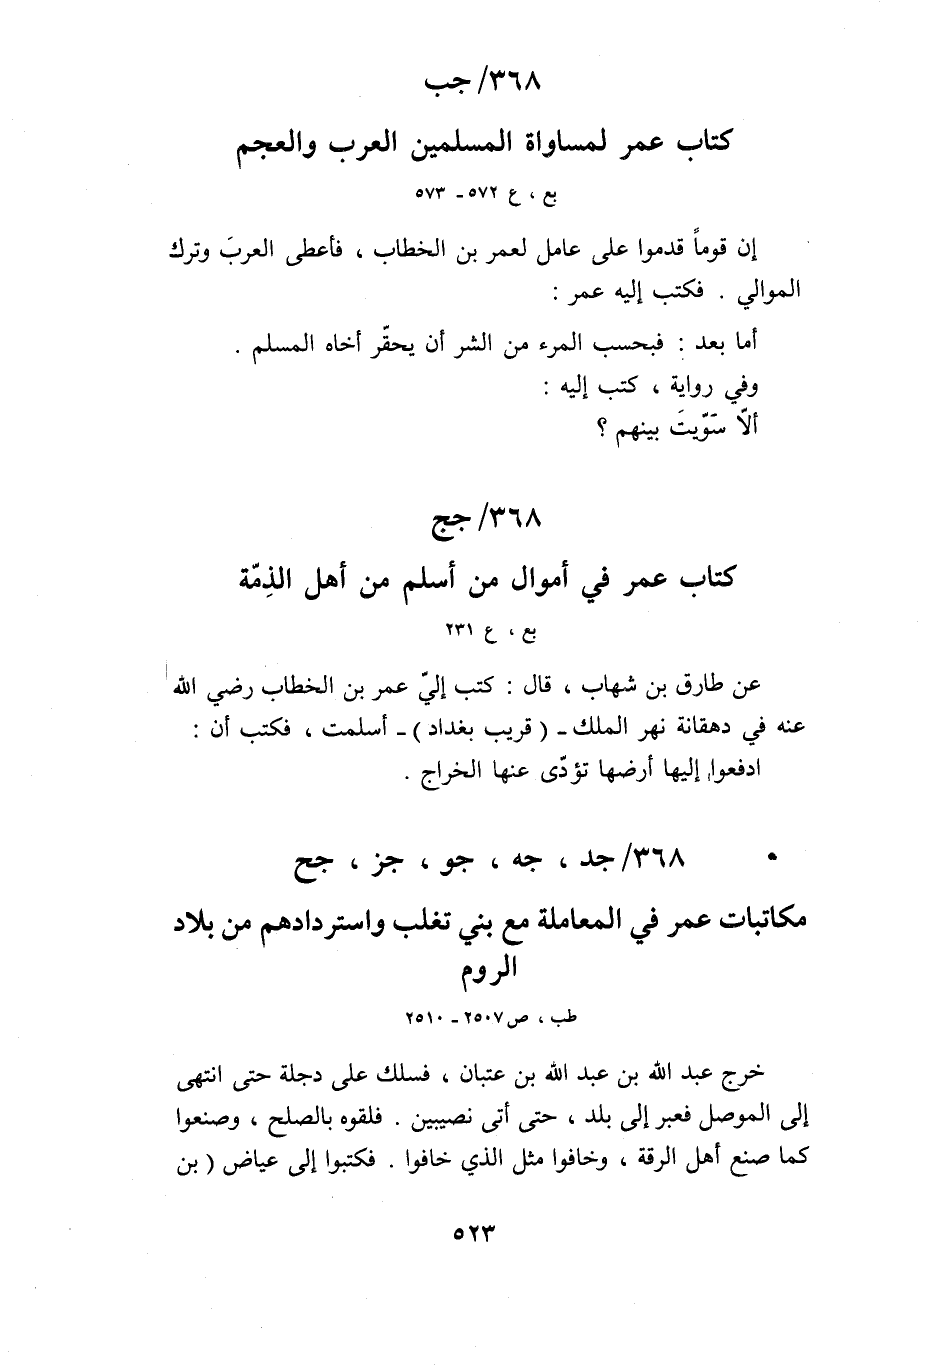 ٣٦٨/جب
كتاب عمر لمساواة المسلمين العرب والعجم
بع ، ع ٥٧٢ ـ ٥٧٣
إن قوماً قدموا على عامل لعمر بن الخطاب ، فأعطى العربَ وترك
الموالي . فكتب إليه عمر :
أما بعد : فبحسب المرء من الشر أن يحقّر أخاه المسلم .
وفي رواية ، كتب إليه :
ألّا سَوّيتَ بينهم ؟
٣٦٨/جج
كتاب عمر في أموال من أسلم من أهل الذِمّة
بع ، ع ٢٣١
عن طارق بن شهاب ، قال : كتب إليّ عمر بن الخطاب رضي الله
عنه في دهقانة نهر الملك ـ ( قريب بغداد ) ـ أسلمت ، فكتب أن :
ادفعوا إليها أرضها تؤدّى عنها الخراج .
• ٣٦٨/جد ، جه ، جو ، جز ، جح
مكاتبات عمر في المعاملة مع بني تغلب واستردادهم من بلاد
الروم
طب ، ص ٢٥٠٧ ـ ٢٥١٠
خرج عبد الله بن عبد الله بن عتبان ، فسلك على دجلة حتى انتهى
إلى الموصل فعبر إلى بلد ، حتى أتى نصيبين . فلقوه بالصلح ، وصنعوا
كما صنع أهل الرقة ، وخافوا مثل الذي خافوا . فكتبوا إلى عياض ( بن
٥٢٣